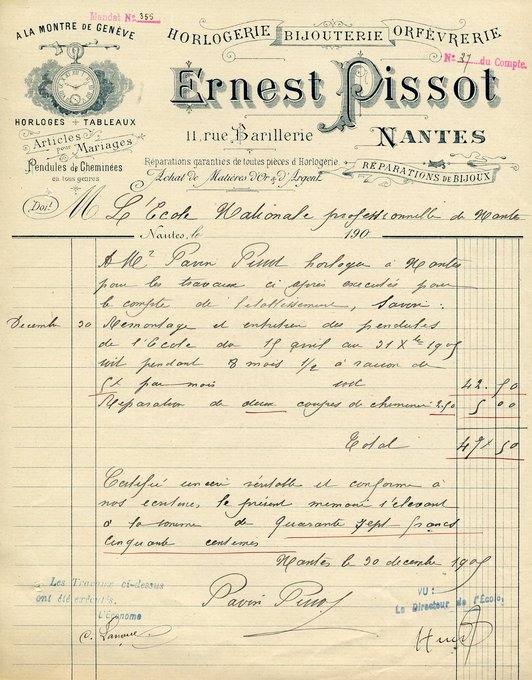 Mandat No. 355
A LA MONTRE DE GENÈVE
HORLOGERIE BIJOUTERIE ORFÈVRERIE
No. 37 du Compte.
Ernest Pissot
HORLOGES & TABLEAUX
11, rue Barillerie NANTES
Articles pour Mariages
Pendules de Cheminées
en tous genres
Réparations garanties de toutes pièces d'Horlogerie
Achat de Matières d'Or & d'Argent
RÉPARATIONS DE BIJOUX
Doit M L'École Nationale professionnelle de Nantes
Nantes, le 190
A Mr Pavin Pissot horloger à Nantes
pour les travaux ci après executés pour
le compte de l'etablissement, Savoir:
Decembre 30 Remontage et entretien des pendules
de l'Ecole du 15 avril au 31 Xbre 1905
soit pendant 8 mois 1/2 à raison de
5f par mois soit 42.50
Réparation de deux coupes de cheminée 2.50 5 00
Total 47f50
Certifié sincère véritable et conforme à
nos ecritures le présent memoire s'élevant
à la somme de quarante sept francs
cinquante centimes
Nantes le 30 decembre 1905
Les Travaux ci-dessus
ont été exécutés.
L'Économe
VU:
Le Directeur de l'École,
Pavin Pissot